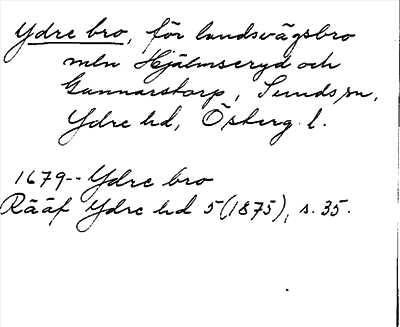 Ydre bro, för landsvägsbro
mln Hjälmseryd och
Gunnarstorp, Sunds sn,
Ydre hd, Österg. l.
1679-- Ydre bro
Rääf Ydre hd 5(1875), s. 35.